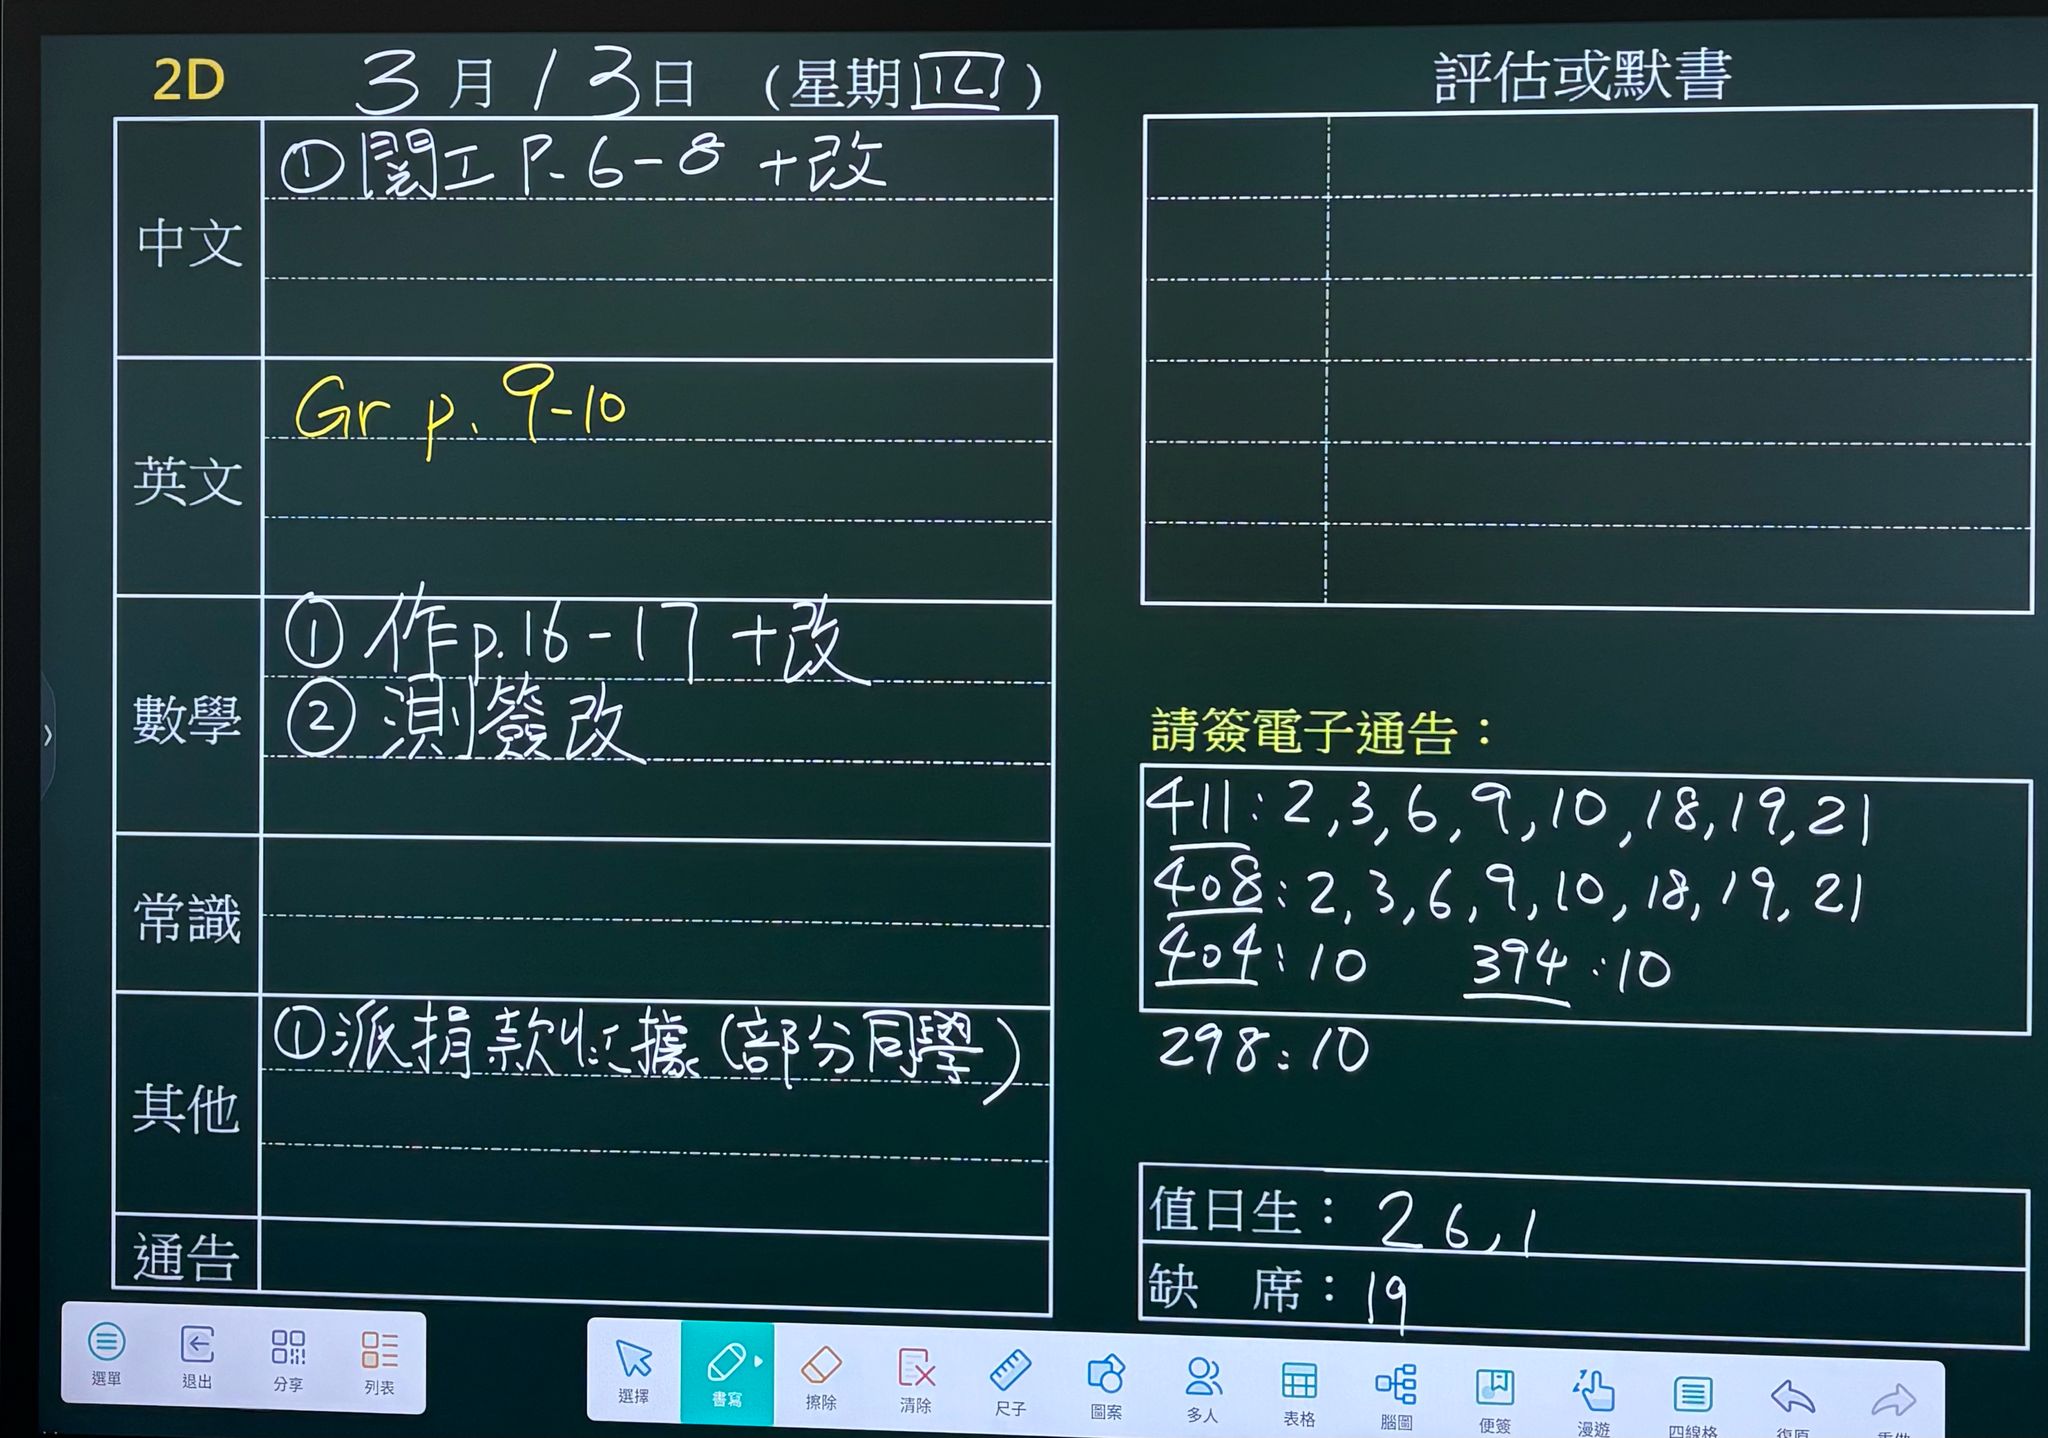 2D 3月13日 (星期四)
中文
①閱工 P. 6-8 +改
英文
Gr p. 9-10
數學
① 作p.16-17 +改
② 測簽改
常識
其他
①派捐款收據(部分同學)
通告
評估或默書
請簽電子通告：
411: 2,3,6,9,10,18,19,21
408: 2,3,6,9,10,18,19,21
404: 10 394:10
298:10
值日生： 26,1
缺 席： 19
選單 退出 分享 列表
選擇 書寫 擦除 清除 尺子 圖案 多人 表格 腦圖 便簽 漫遊 四線格 復原